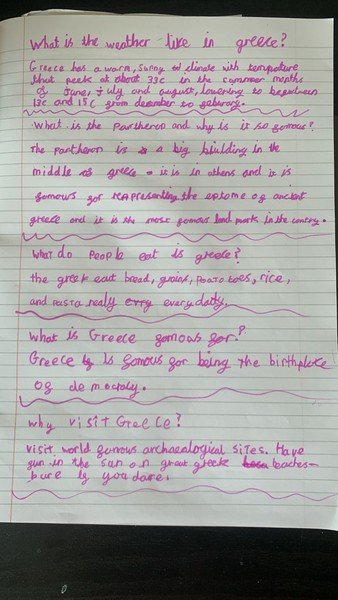 what is the weather like in greece?
Greece has a warm, sunny climate with temperature
that peek at about 33c in the sammer months
of June, July and august, lowering to between
13c and 15c from december to febuary.
What is the Partheron and why is it so famous?
The partheron is a big biulding in the
middle of greece it is in athens and it is
famous for representing the epitome of ancient
greece and it is the most famous land mark in the contry.
What do People eat is greece?
the greek eat bread, grains, potatoes, rice,
and pasta realy every day.
What is Greece famous for?
Greece is famous for being the birthplace
of democraty.
why visit Greece?
visit world famous archaeological sites. Have
fun in the sun on great greek beaches-
bare if you dare.